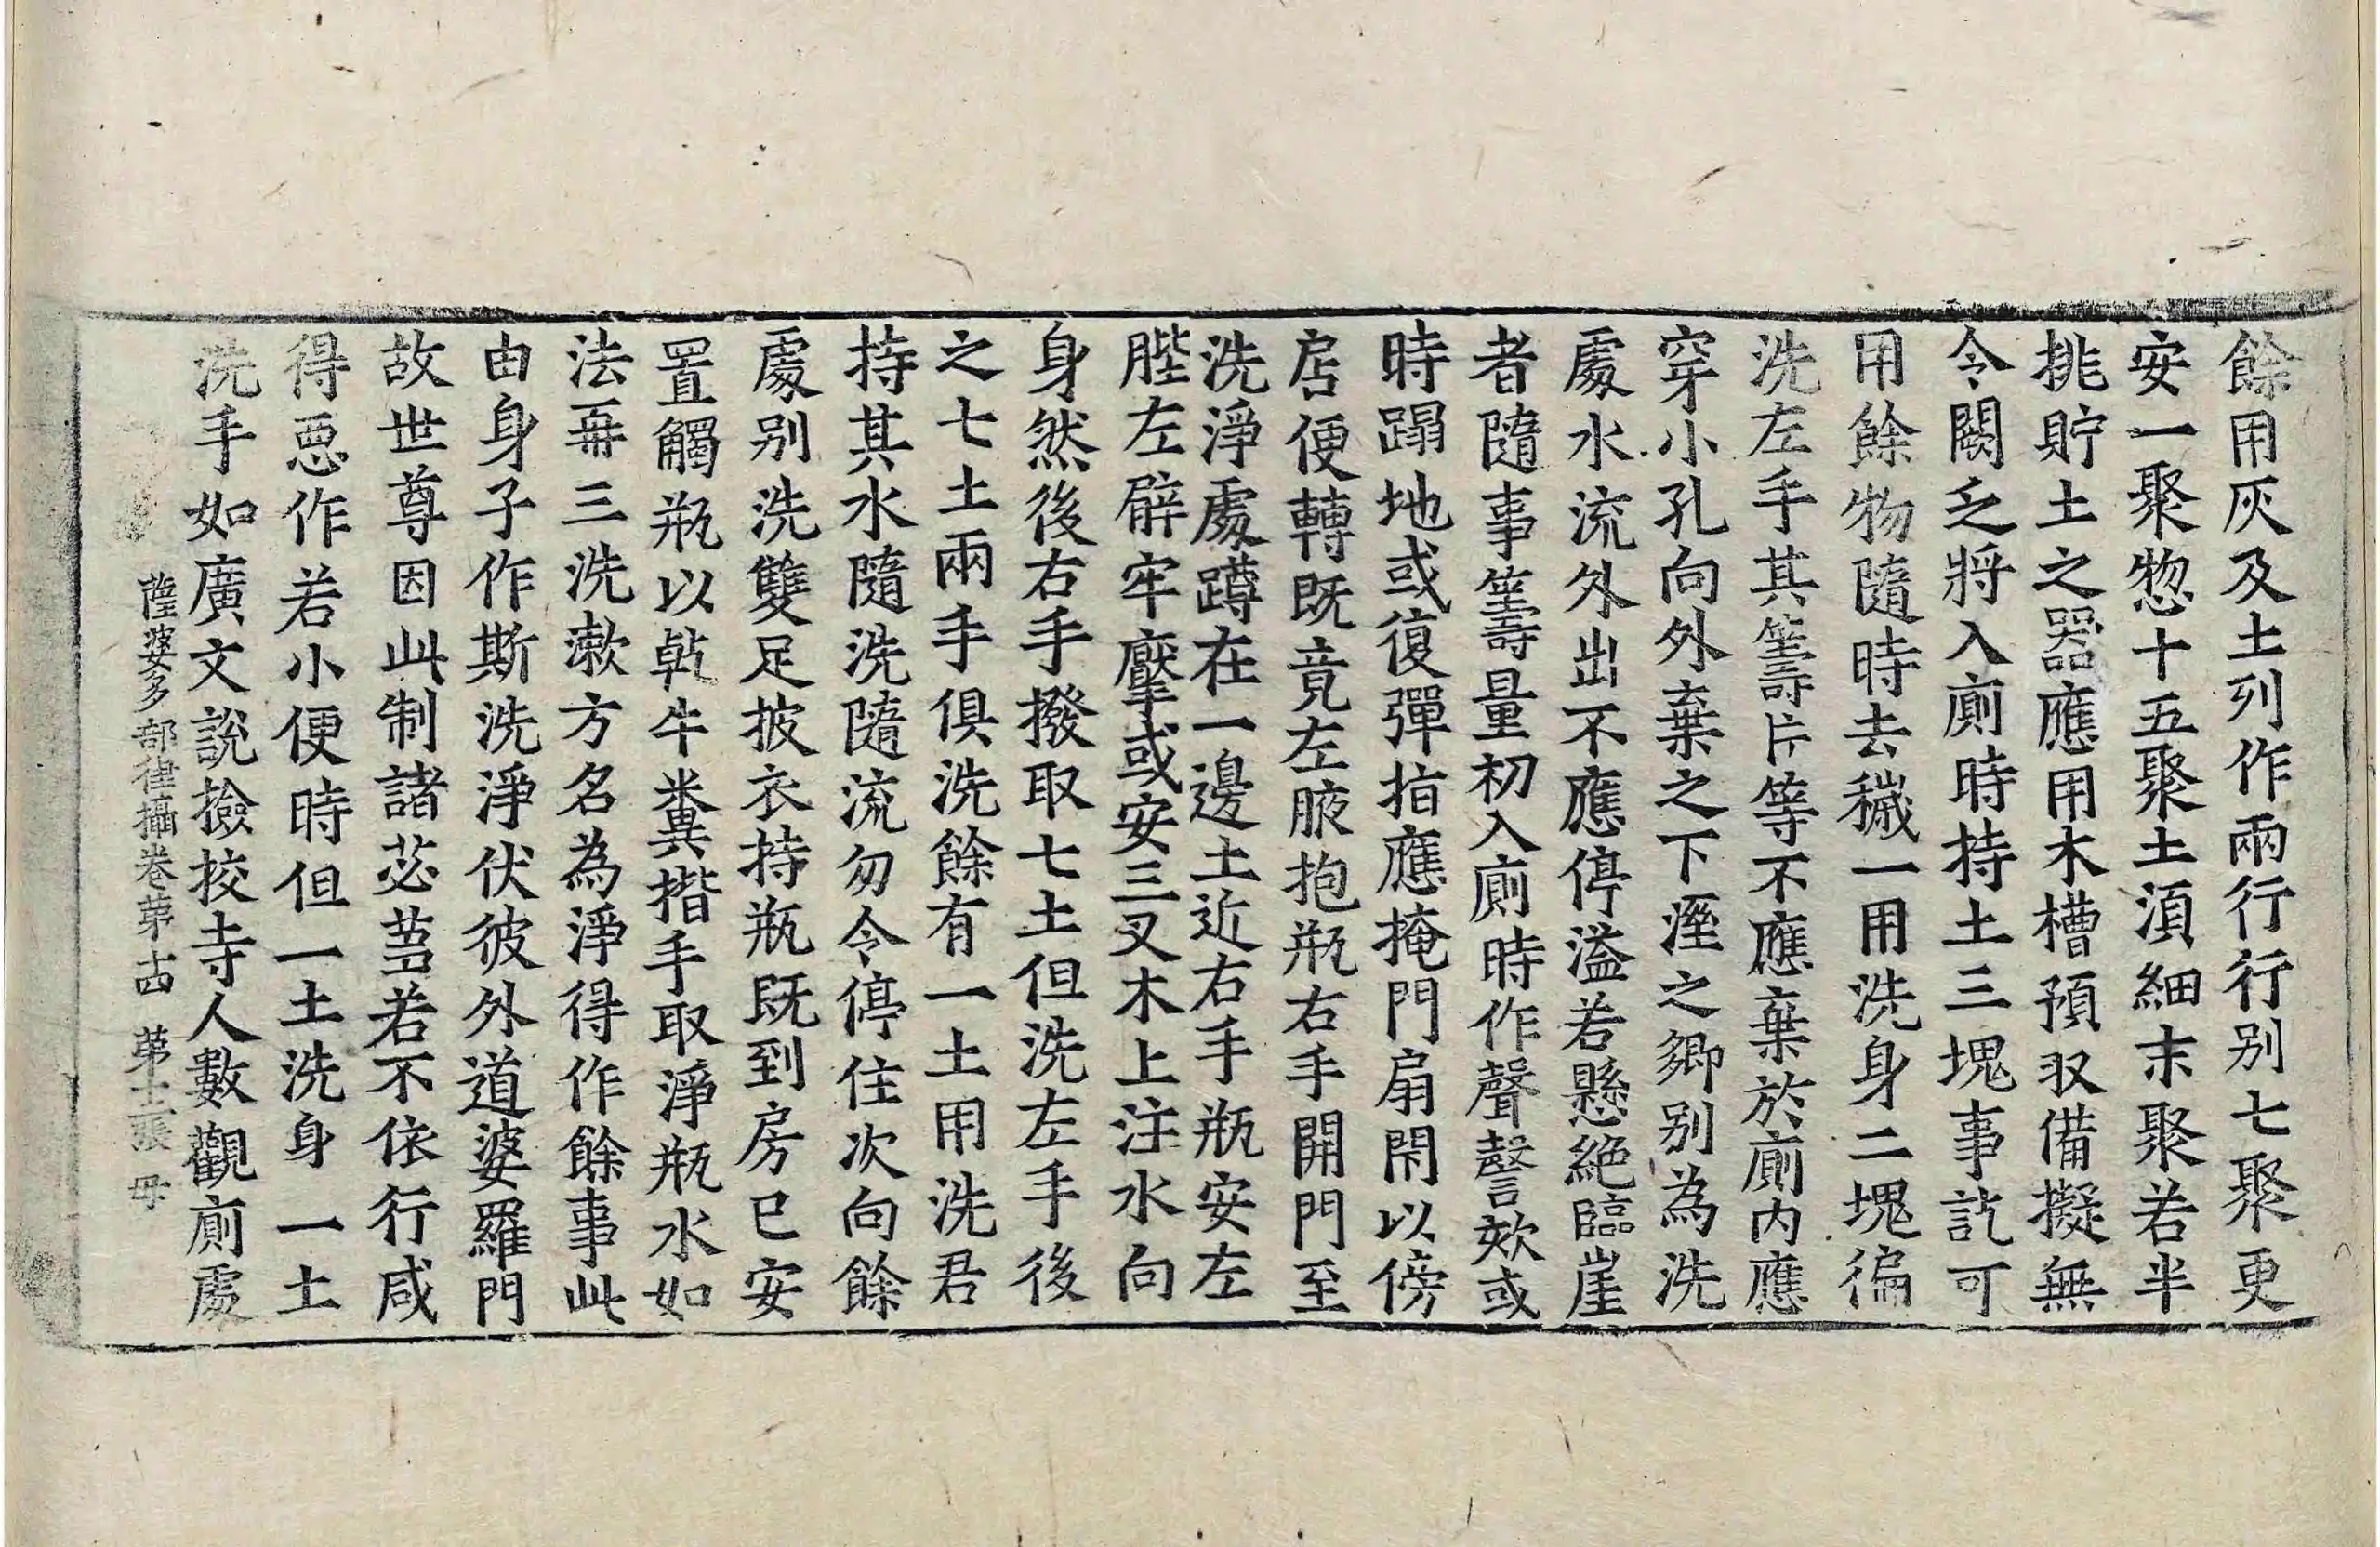 餘用灰及土列作兩行行別七聚更
安一聚惣十五聚土湏細末聚若半
挑貯土之器應用木槽預収備擬無
令闕乏將入廁時持土三塊事訖可
用餘物隨時去穢一用洗身二塊徧
洗左手其籌片等不應棄於廁內應
穿小孔向外棄之下溼之鄉別為洗
處水流外出不應停溢若懸絶臨崖
者隨事籌量初入廁時作聲謦欬或
時蹋地或復彈指應掩門扇閇以傍
居便轉既竟左腋抱瓶右手開門至
洗淨處蹲在一邊土近右手瓶安左
䏶左臂牢壓或安三叉木上注水向
身然後右手撥取七土但洗左手後
之七土兩手俱洗餘有一土用洗君
持其水隨洗隨流勿令停住次向餘
處別洗雙足披衣持瓶既到房已安
置觸瓶以乾牛糞揩手取淨瓶水如
法再三洗漱方名為淨得作餘事此
由身子作斯洗淨伏彼外道婆羅門
故世尊因此制諸苾芻若不依行咸
得惡作若小便時但一土洗身一土
洗手如廣文說撿挍寺人數觀廁處
薩婆多部律攝卷第十四 第十二張 母